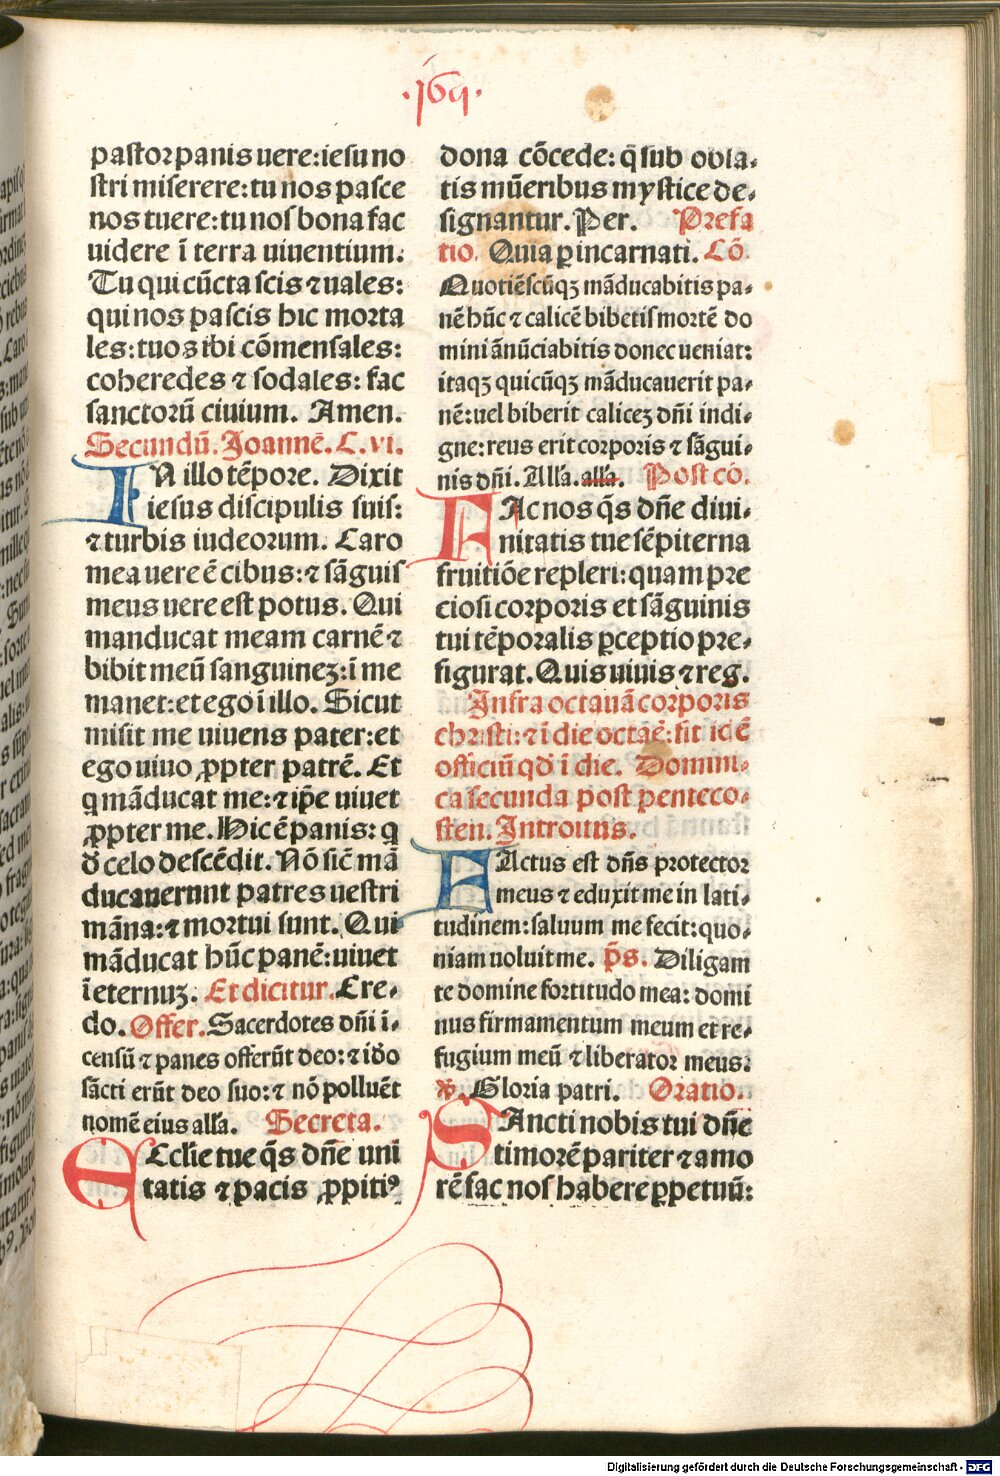 .169.
pastor panis uere: iesu no
stri miserere: tu nos pasce
nos tuere: tu nos bona fac
uidere ī terra uiuentium.
Tu qui cūcta scis ⁊ uales:
qui nos pascis hic morta
les: tuos ibi cōmensales:
coheredes ⁊ sodales: fac
sanctorū ciuium. Amen.
Secundū. Joannē. C. vi.
IN illo tēpore. Dixit
iesus discipulis suis:
⁊ turbis iudeorum. Caro
mea uere ē cibus: ⁊ sāguis
meus uere est potus. Qui
manducat meam carnē ⁊
bibit meū sanguineꝫ: ī me
manet: et ego ī illo. Sicut
misit me uiuens pater: et
ego uiuo ꝓpter patrē. Et
q māducat me: ⁊ ip̄e uiuet
ꝓpter me. Hic ē panis: q
d̄ celo descēdit. Nō sic̄ mā
ducauerunt patres uestri
māna: ⁊ mortui sunt. Qui
māducat hūc panē: uiuet
ī eternuꝫ. Et dicitur. Cre⸗
do. Offer. Sacerdotes dn̄i ī⸗
censū ⁊ panes offerūt deo: ⁊ iđo
sācti erūt deo suo: ⁊ nō polluēt
nomē eius all̄a. Secreta.
ECcl̄ie tue q̄s dn̄e uni
tatis ⁊ pacis ꝓpitiꝰ
dona cōcede: q̄ sub obla⸗
tis mūeribus mystice de⸗
signantur. Per. Prefa
tio. Quia ꝑ incarnati. Cō.
Quotiēscūqꝫ māducabitis pa⸗
nē hūc ⁊ calicē bibetis mortē do
mini ānūciabitis donec ueniat:
itaqꝫ quicūqꝫ māducauerit pa⸗
nē: uel biberit caliceꝫ dn̄i indi⸗
gne: reus erit corporis ⁊ sāgui⸗
nis dn̄i. All̄a. all̄a. Post cō.
FAc nos q̄s dn̄e diui⸗
nitatis tue sēpiterna
fruitiōe repleri: quam pre
ciosi corporis et sāguinis
tui tēporalis ꝑceptio pre⸗
figurat. Quis uiuis ⁊ reg.
Infra octauā corporis
christi: ⁊ ī die octaē: fit idē
officiū qđ ī die. Domini⸗
ca secunda post penteco⸗
sten. Introitus.
FActus est dn̄s protector
meus ⁊ eduxit me in lati⸗
tudinem: saluum me fecit: quo⸗
niam uoluit me. p̄s. Diligam
te domine fortitudo mea: domi
nus firmamentum meum et re⸗
fugium meū ⁊ liberator meus.
℣. Gloria patri. Oratio.
SAncti nobis tui dn̄e
timorē pariter ⁊ amo
rē fac nos habere ꝑpetuū:
Digitalisierung gefördert durch die Deutsche Forschungsgemeinschaft - DFG